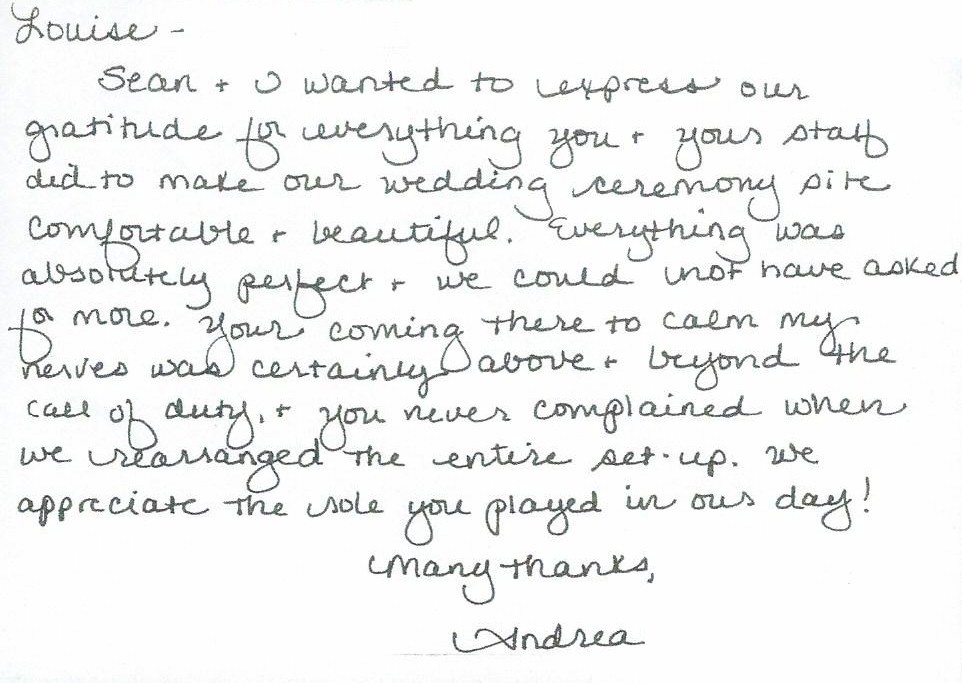 Louise -
Sean + I wanted to express our
gratitude for everything you + your staff
did to make our wedding ceremony site
comfortable + beautiful. Everything was
absolutely perfect + we could not have asked
for more. Your coming there to calm my
nerves was certainly above + beyond the
call of duty, + you never complained when
we rearranged the entire set-up. We
appreciate the role you played in our day!
Many thanks,
Andrea